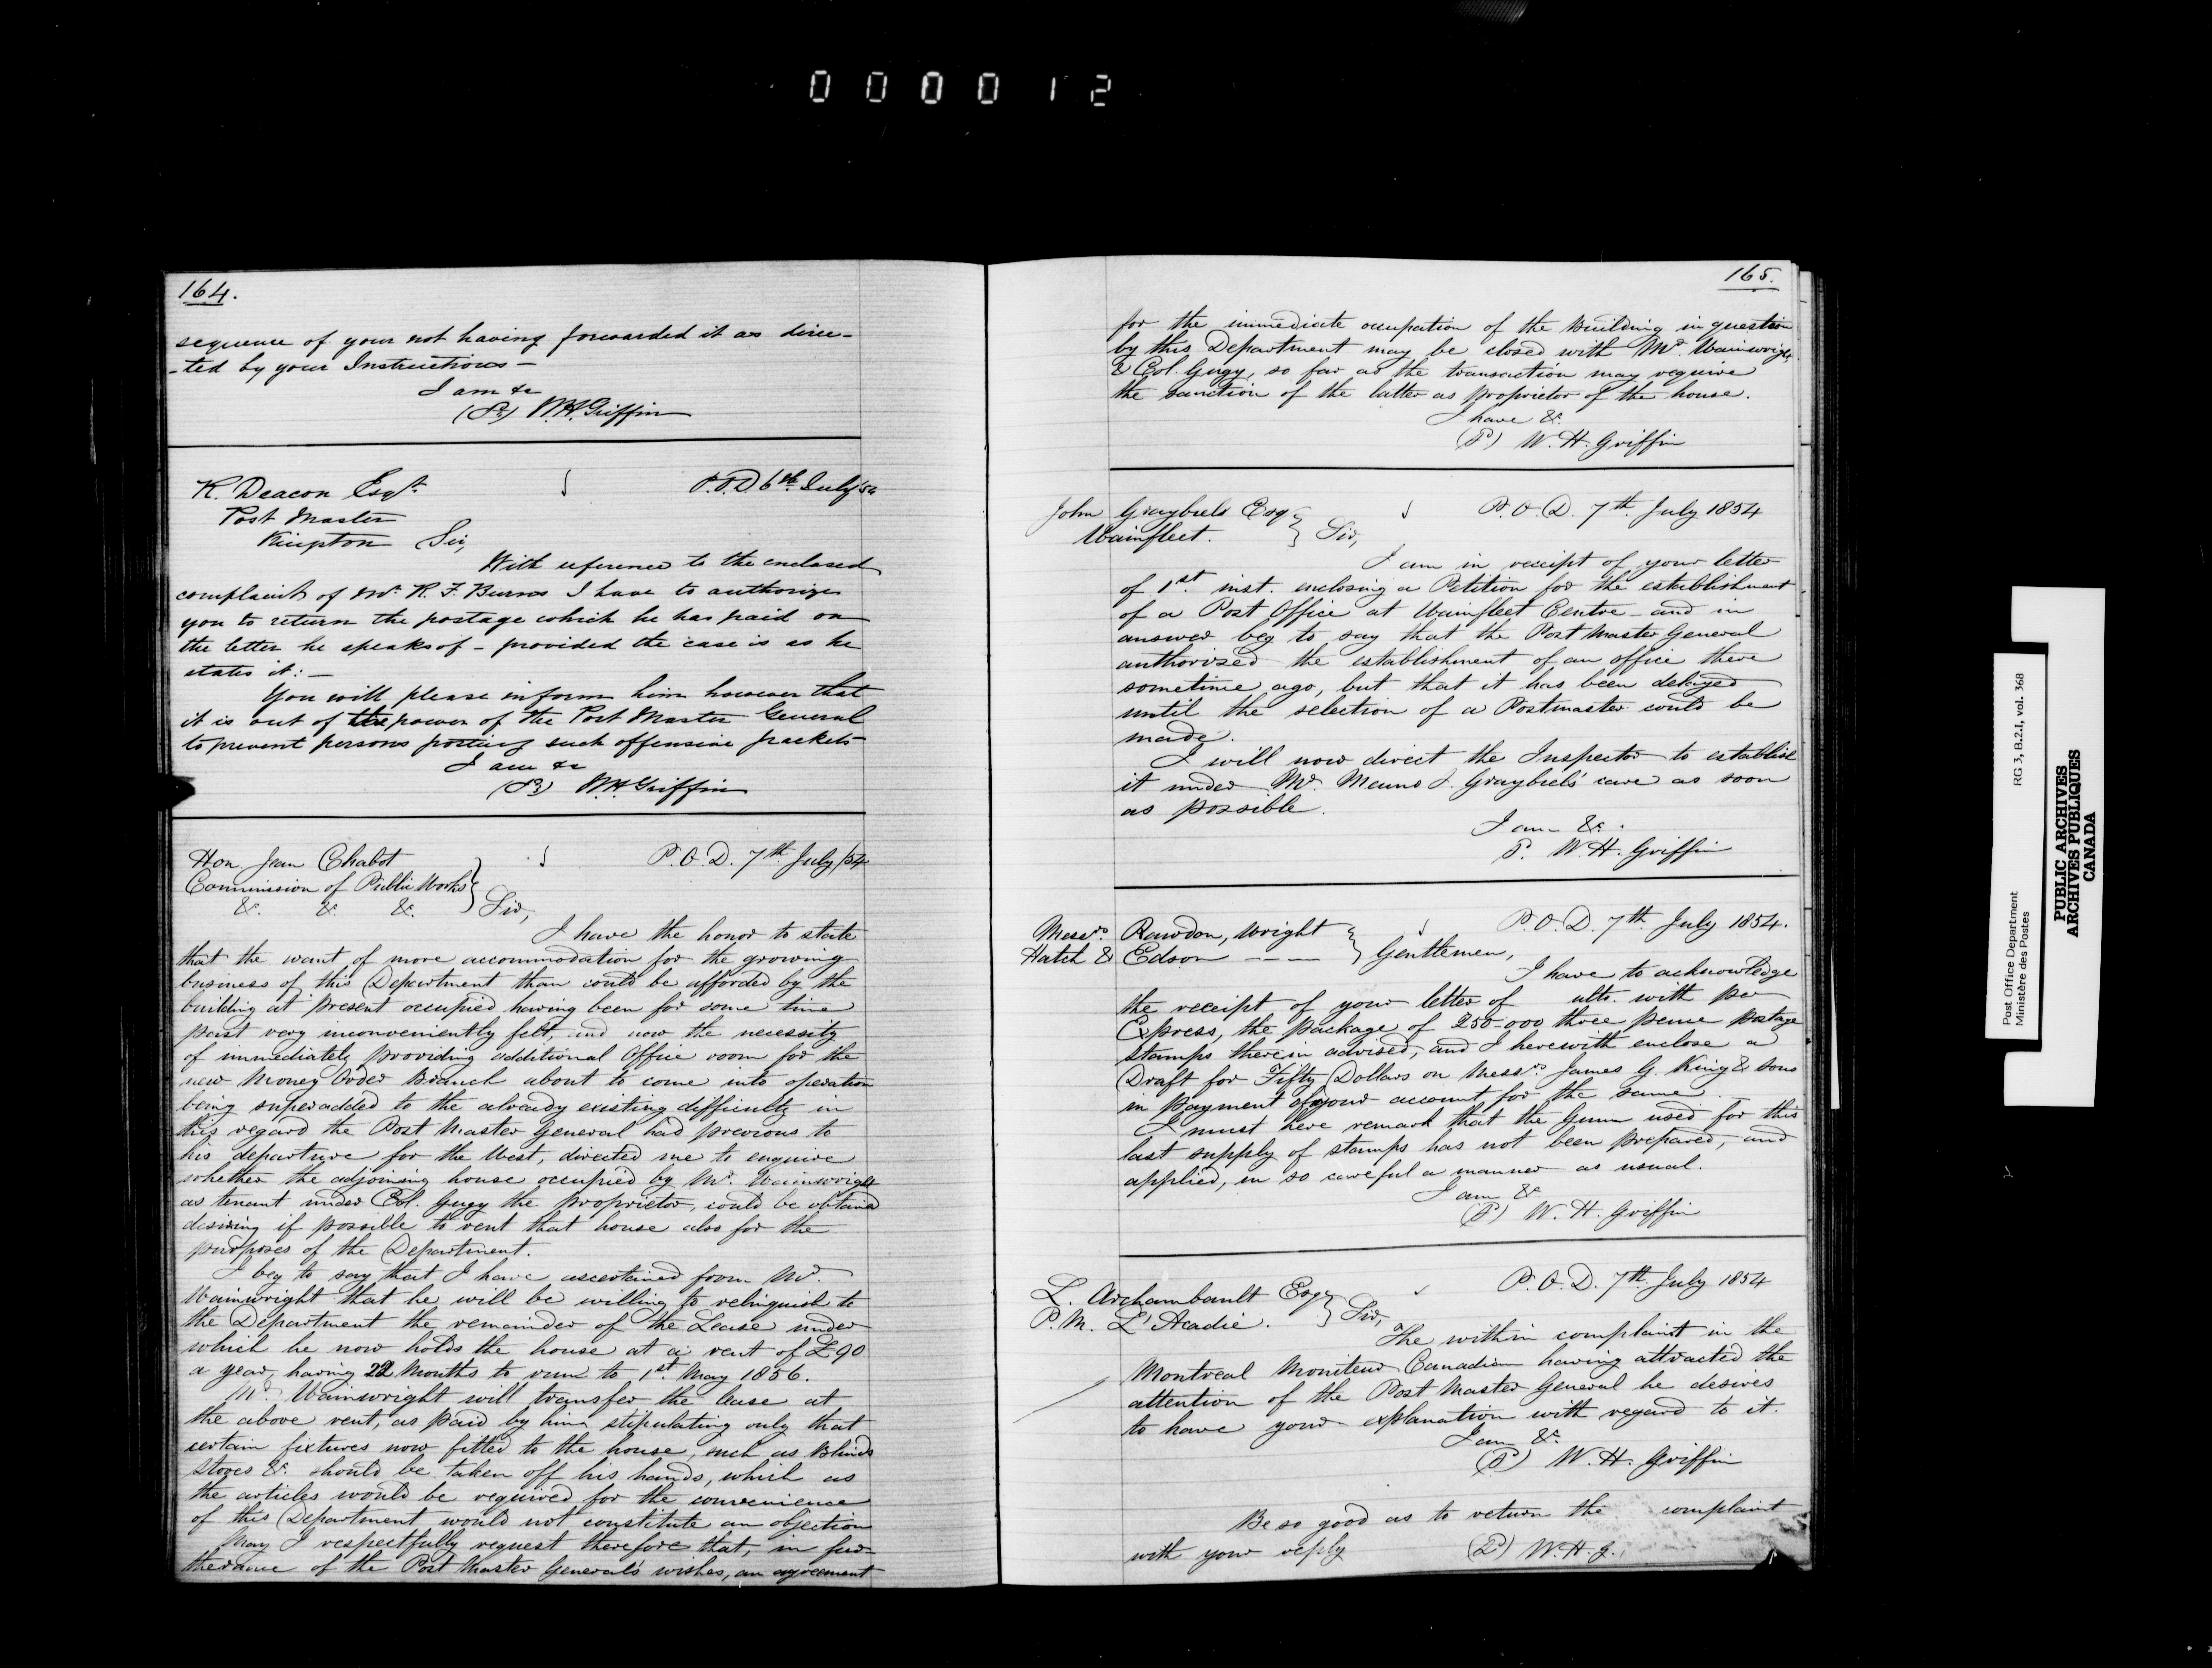 000012
164.
sequence of your not having forwarded it as direc-
-ted by your Instructions -
I am &c
(Sd) W.H. Griffin
R. Deacon Esqr.
P.O.D 6th July/54
Post Master
Kingston Sir,
With reference to the enclosed
complaint of Mr. R. F. Burns I have to authorize
you to return the postage which he has paid on
the letter he speaks of - provided the case is as he
states it: -
You will please inform him however that
it is out of the power of the Post Master General
to prevent persons posting such offensive packets
I am &c
(Sd) W.H. Griffin
Hon. Jean Chabot
P.O.D. 7th July/54
Commission of Public Works
&c. &c. &c. Sir,
I have the honor to state
that the want of more accommodation for the growing
business of this Department than could be afforded by the
building at present occupied having been for some time
past very inconveniently felt, and now the necessity
of immediately providing additional Office room for the
new Money Order Branch about to come into operation
being superadded to the already existing difficulty in
this regard the Post Master General had previous to
his departure for the West, directed me to enquire
whether the adjoining house occupied by Mr. Wainwright
as tenant under Col. Gugy the proprietor, could be obtained
desiring if possible to rent that house also for the
purposes of the Department.
I beg to say that I have ascertained from Mr.
Wainwright that he will be willing to relinquish to
the Department the remainder of the Lease under
which he now holds the house at a rent of £90
a year, having 22 Months to run to 1st May 1856.
Mr. Wainwright will transfer the lease at
the above rent, as paid by him stipulating only that
certain fixtures now fitted to the house, such as Blinds
Stoves &c. should be taken off his hands, which as
the articles would be required for the convenience
of this Department would not constitute an objection
May I respectfully request therefore that, in fur-
therance of the Post Master General's wishes, an agreement
165.
for the immediate occupation of the Building in question
by this Department may be closed with Mr. Wainwright
& Col. Gugy, so far as the transaction may require
the sanction of the latter as proprietor of the house.
I have &c.
(S.) W. H. Griffin
John Graybiels Esq
P.O.D. 7th July 1854
Wainfleet. Sir,
I am in receipt of your letter
of 1st. inst. enclosing a Petition for the establishment
of a Post Office at Wainfleet Centre - and in
answer beg to say that the Post Master General
authorized the establishment of an office there
sometime ago, but that it has been delayed
until the selection of a Postmaster could be
made.
I will now direct the Inspector to establish
it under Mr. Menno S. Graybiels' care as soon
as possible.
I am - &c.
S. W. H. Griffin
Messrs. Rawdon, Wright
P.O.D. 7th July 1854.
Hatch & Edson - - - Gentlemen,
I have to acknowledge
the receipt of your letter of ulto. with per
Express, the package of 250.000 three pence postage
stamps therein advised, and I herewith enclose a
Draft for Fifty Dollars on Messrs. James G. King & Sons
in payment of your account for the same.
I must here remark that the Gum used for this
last supply of stamps has not been prepared, and
applied, in so careful a manner as usual.
I am &c
(S) W. H. Griffin
L. Archambault Esq
P.O.D. 7th July 1854
P.M. L'Acadie. Sir,
The within complaint in the
Montreal Moniteur Canadien having attracted the
attention of the Post Master General he desires
to have your explanation with regard to it.
I am &c.
(S) W. H. Griffin
Be so good as to return the complaint
with your reply (Sd) W. H. G.
Post Office Department
Ministère des Postes
RG 3, B.2.I, vol. 368
PUBLIC ARCHIVES
ARCHIVES PUBLIQUES
CANADA